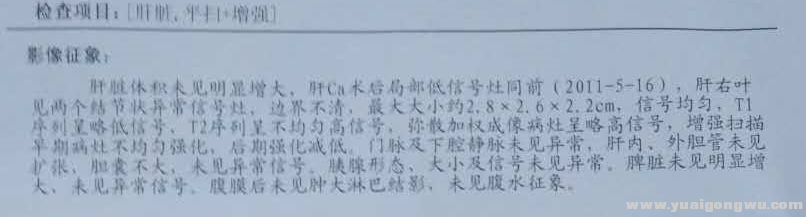 检查项目：[肝脏,平扫+增强]
影像征象：
肝脏体积未见明显增大，肝Ca术后局部低信号灶同前（2011-5-16），肝右叶
见两个结节状异常信号灶，边界不清，最大大小约2.8×2.6×2.2cm，信号均匀，T1
序列呈略低信号，T2序列呈不均匀高信号，弥散加权成像病灶呈略高信号，增强扫描
早期病灶不均匀强化，后期强化减低。门脉及下腔静脉未见异常，肝内、外胆管未见
扩张，胆囊不大，未见异常信号。胰腺形态、大小及信号未见异常。脾脏未见明显增
大，未见异常信号。腹膜后未见肿大淋巴结影，未见腹水征象。
www.yuaigongwu.com